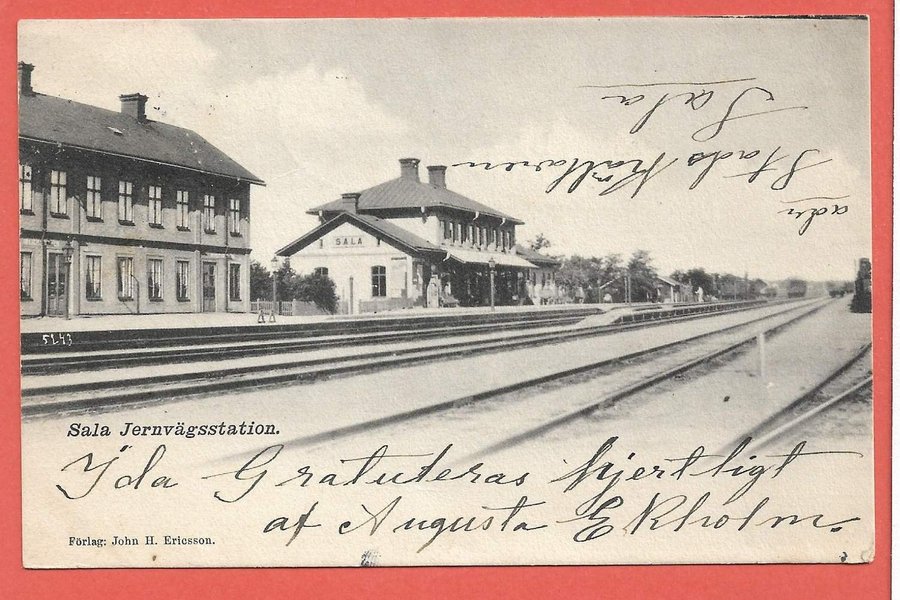 Sala
Stads Källaren
adr
SALA
5143
Sala Jernvägsstation.
Ida Gratuteras hjertligt
af Augusta Ekholm.
Förlag: John H. Ericsson.